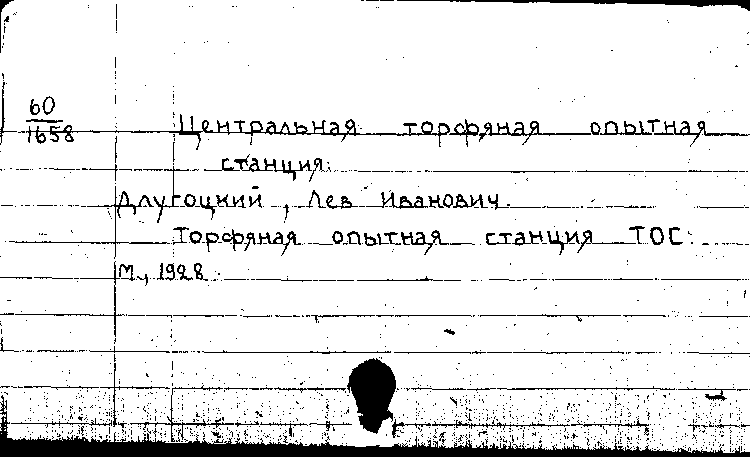 60
1658
Центральная торфяная опытная
станция.
Длугоцкий, Лев Иванович.
Торфяная опытная станция ТОС.
М., 1928.